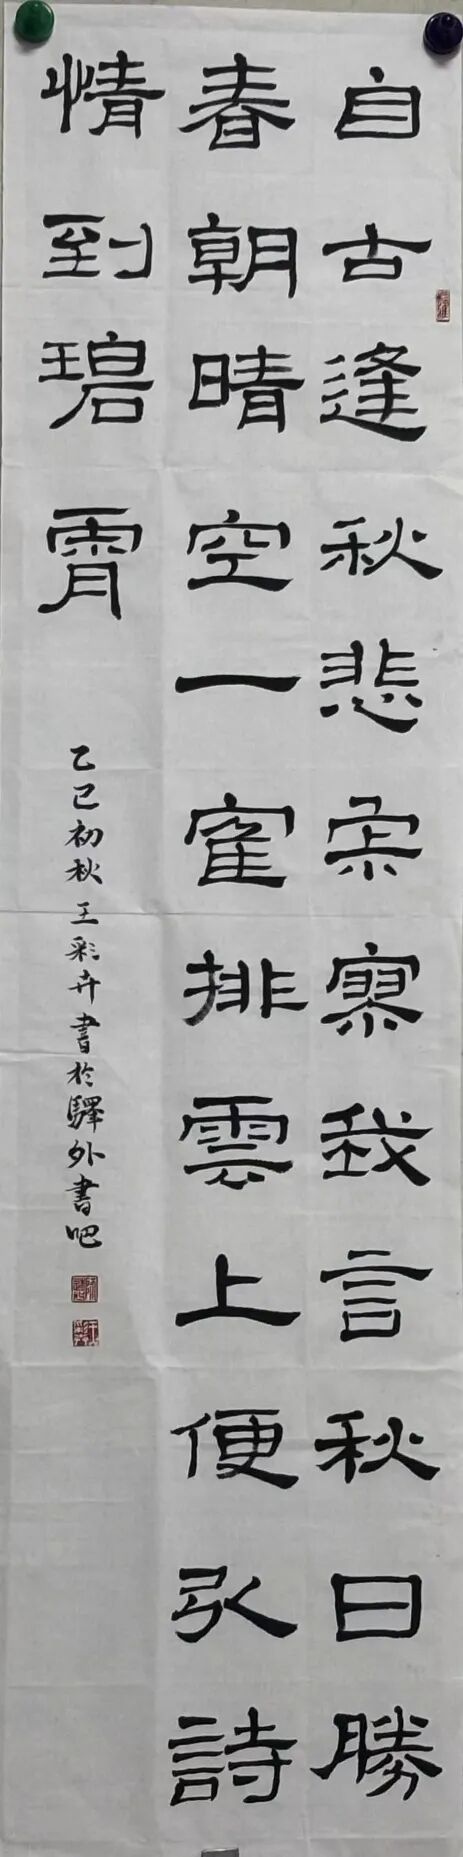 自古逢秋悲宋寥我言秋日勝
春朝晴空一隺排雲上便引詩
情到碧霄
乙巳初秋王彩卉書於驛外書吧